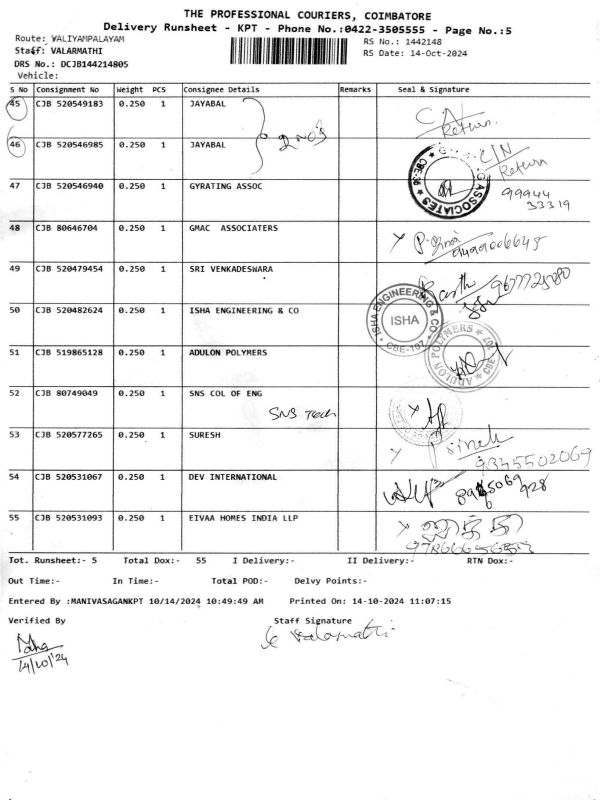 THE PROFESSIONAL COURIERS, COIMBATORE
Delivery Runsheet - KPT - Phone No.:0422-3505555 - Page No.:5
Route: VALIYAMPALAYAM RS No.: 1442148
Staff: VALARMATHI RS Date: 14-Oct-2024
DRS No.: DCJB144214805
Vehicle:
S No Consignment No Weight PCS Consignee Details Remarks Seal & Signature
45 CJB 520549183 0.250 1 JAYABAL
Return
2 nos
46 CJB 520546985 0.250 1 JAYABAL C/N
Return
47 CJB 520546940 0.250 1 GYRATING ASSOC
G ASSOCIATES CBE-36
99944
33319
48 CJB 80646704 0.250 1 GMAC ASSOCIATERS
49 CJB 520479454 0.250 1 SRI VENKADESWARA
50 CJB 520482624 0.250 1 ISHA ENGINEERING & CO
ISHA ENGINEERING & CO
ISHA
CBE-107
51 CJB 519865128 0.250 1 ADULON POLYMERS
ADULON POLYMERS CBE-107
52 CJB 80749049 0.250 1 SNS COL OF ENG
SNS Tech
53 CJB 520577265 0.250 1 SURESH
9345502069
54 CJB 520531067 0.250 1 DEV INTERNATIONAL
928
55 CJB 520531093 0.250 1 EIVAA HOMES INDIA LLP
Tot. Runsheet:- 5 Total Dox:- 55 I Delivery:- II Delivery:- RTN Dox:-
Out Time:- In Time:- Total POD:- Delvy Points:-
Entered By :MANIVASAGANKPT 10/14/2024 10:49:49 AM Printed On: 14-10-2024 11:07:15
Verified By Staff Signature
14/10/24